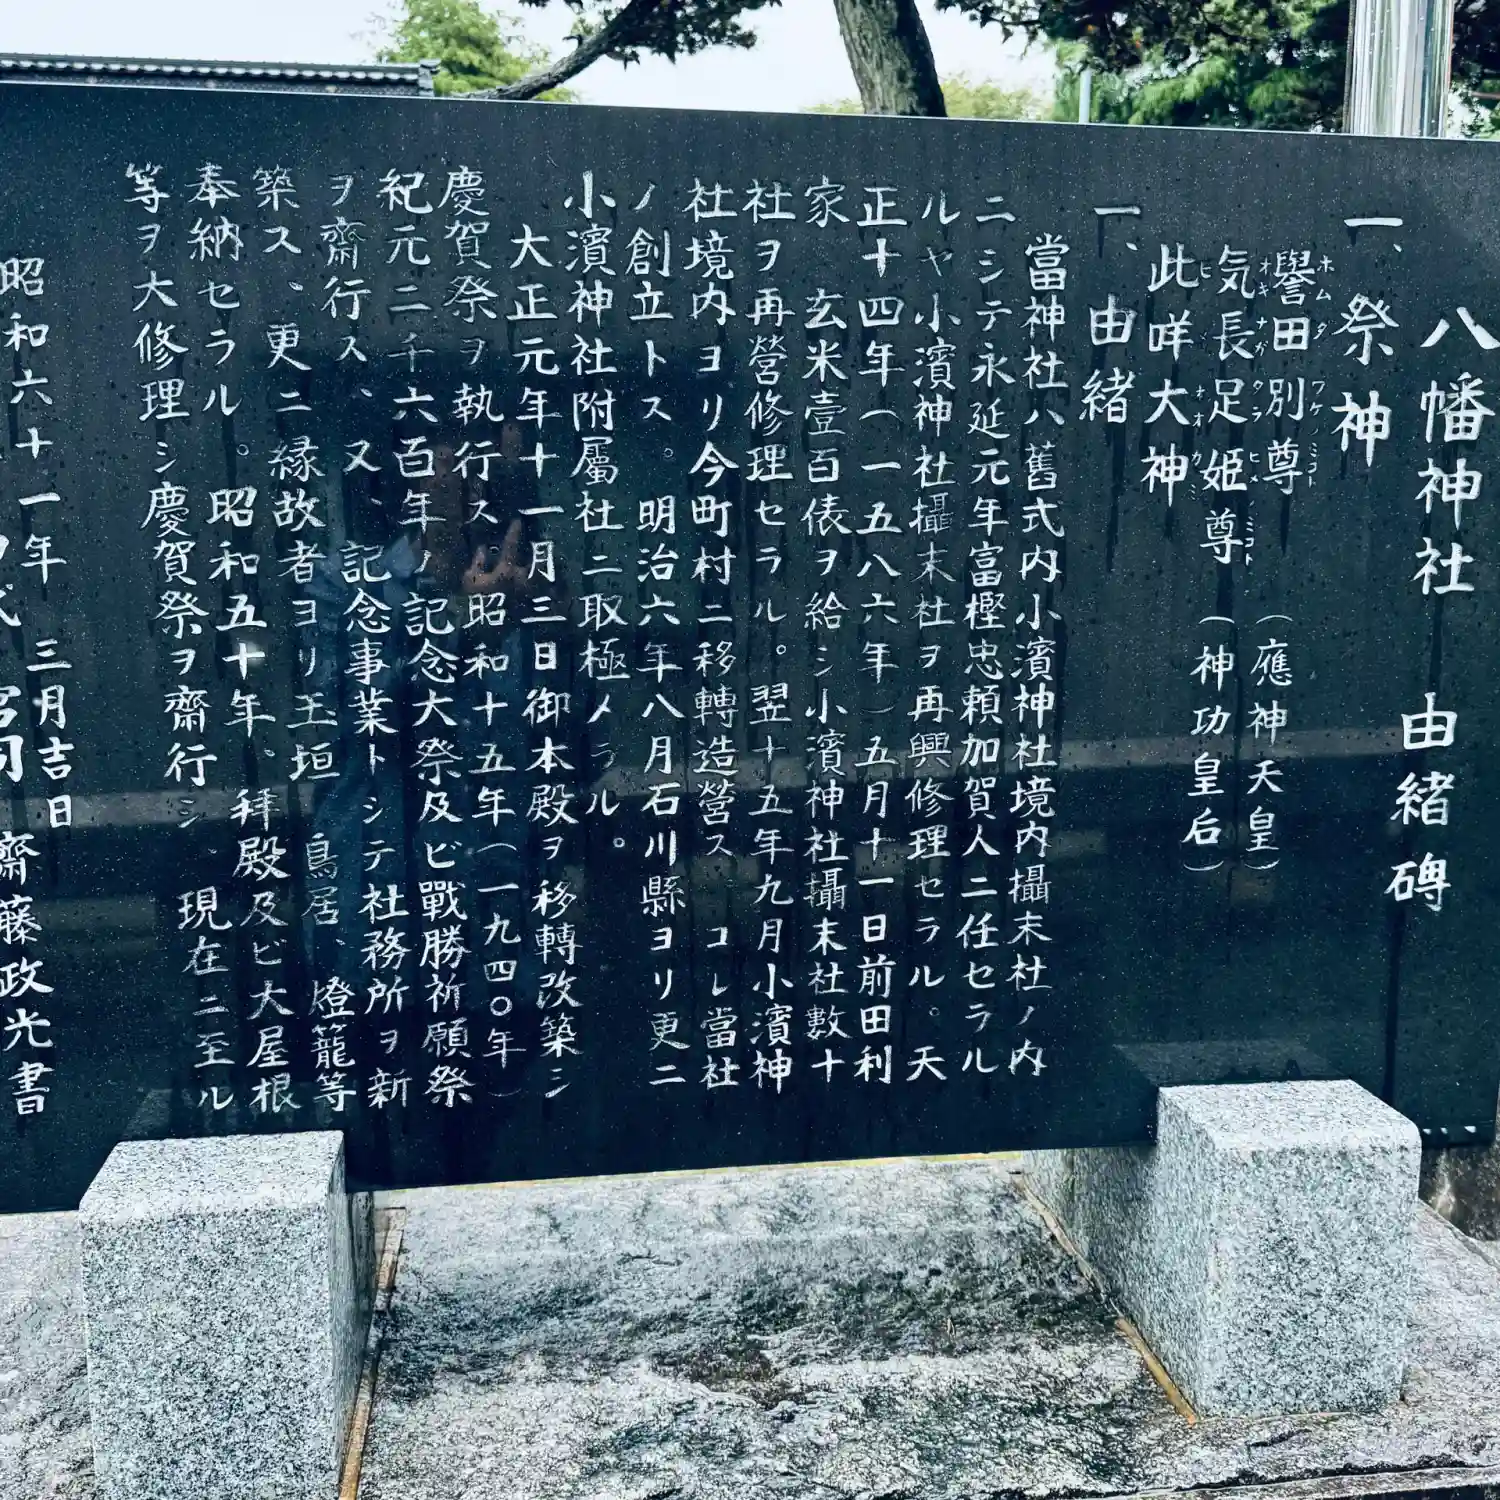 八幡神社　由緒碑
一、祭神
譽田別尊　（應神天皇）
ホムダワケノミコト
気長足姫尊　（神功皇后）
オキナガタラヒメノミコト
此咩大神
ヒメオオカミ
一、由緒
當神社ハ舊式内小濱神社境内攝末社ノ内
ニシテ永延元年富樫忠頼加賀人ニ任セラル
ルヤ小濱神社攝末社ヲ再興修理セラル。天
正十四年（一五八六年）五月十一日前田利
家　玄米壹百俵ヲ給シ小濱神社攝末社數十
社ヲ再營修理セラル。翌十五年九月小濱神
社境内ヨリ今町村ニ移轉造營ス　コレ當社
ノ創立トス。明治六年八月石川縣ヨリ更ニ
小濱神社附屬社ニ取極メラル。
大正元年十一月三日御本殿ヲ移轉改築シ
慶賀祭ヲ執行ス。昭和十五年（一九四〇年）
紀元二千六百年ノ記念大祭及ビ戰勝祈願祭
ヲ齋行ス、又、記念事業トシテ社務所ヲ新
築ス、更ニ縁故者ヨリ玉垣　鳥居、燈籠等
奉納セラル。昭和五十年、拜殿及ビ大屋根
等ヲ大修理シ慶賀祭ヲ齋行シ、現在ニ至ル
昭和六十一年　三月吉日
齋藤政光書